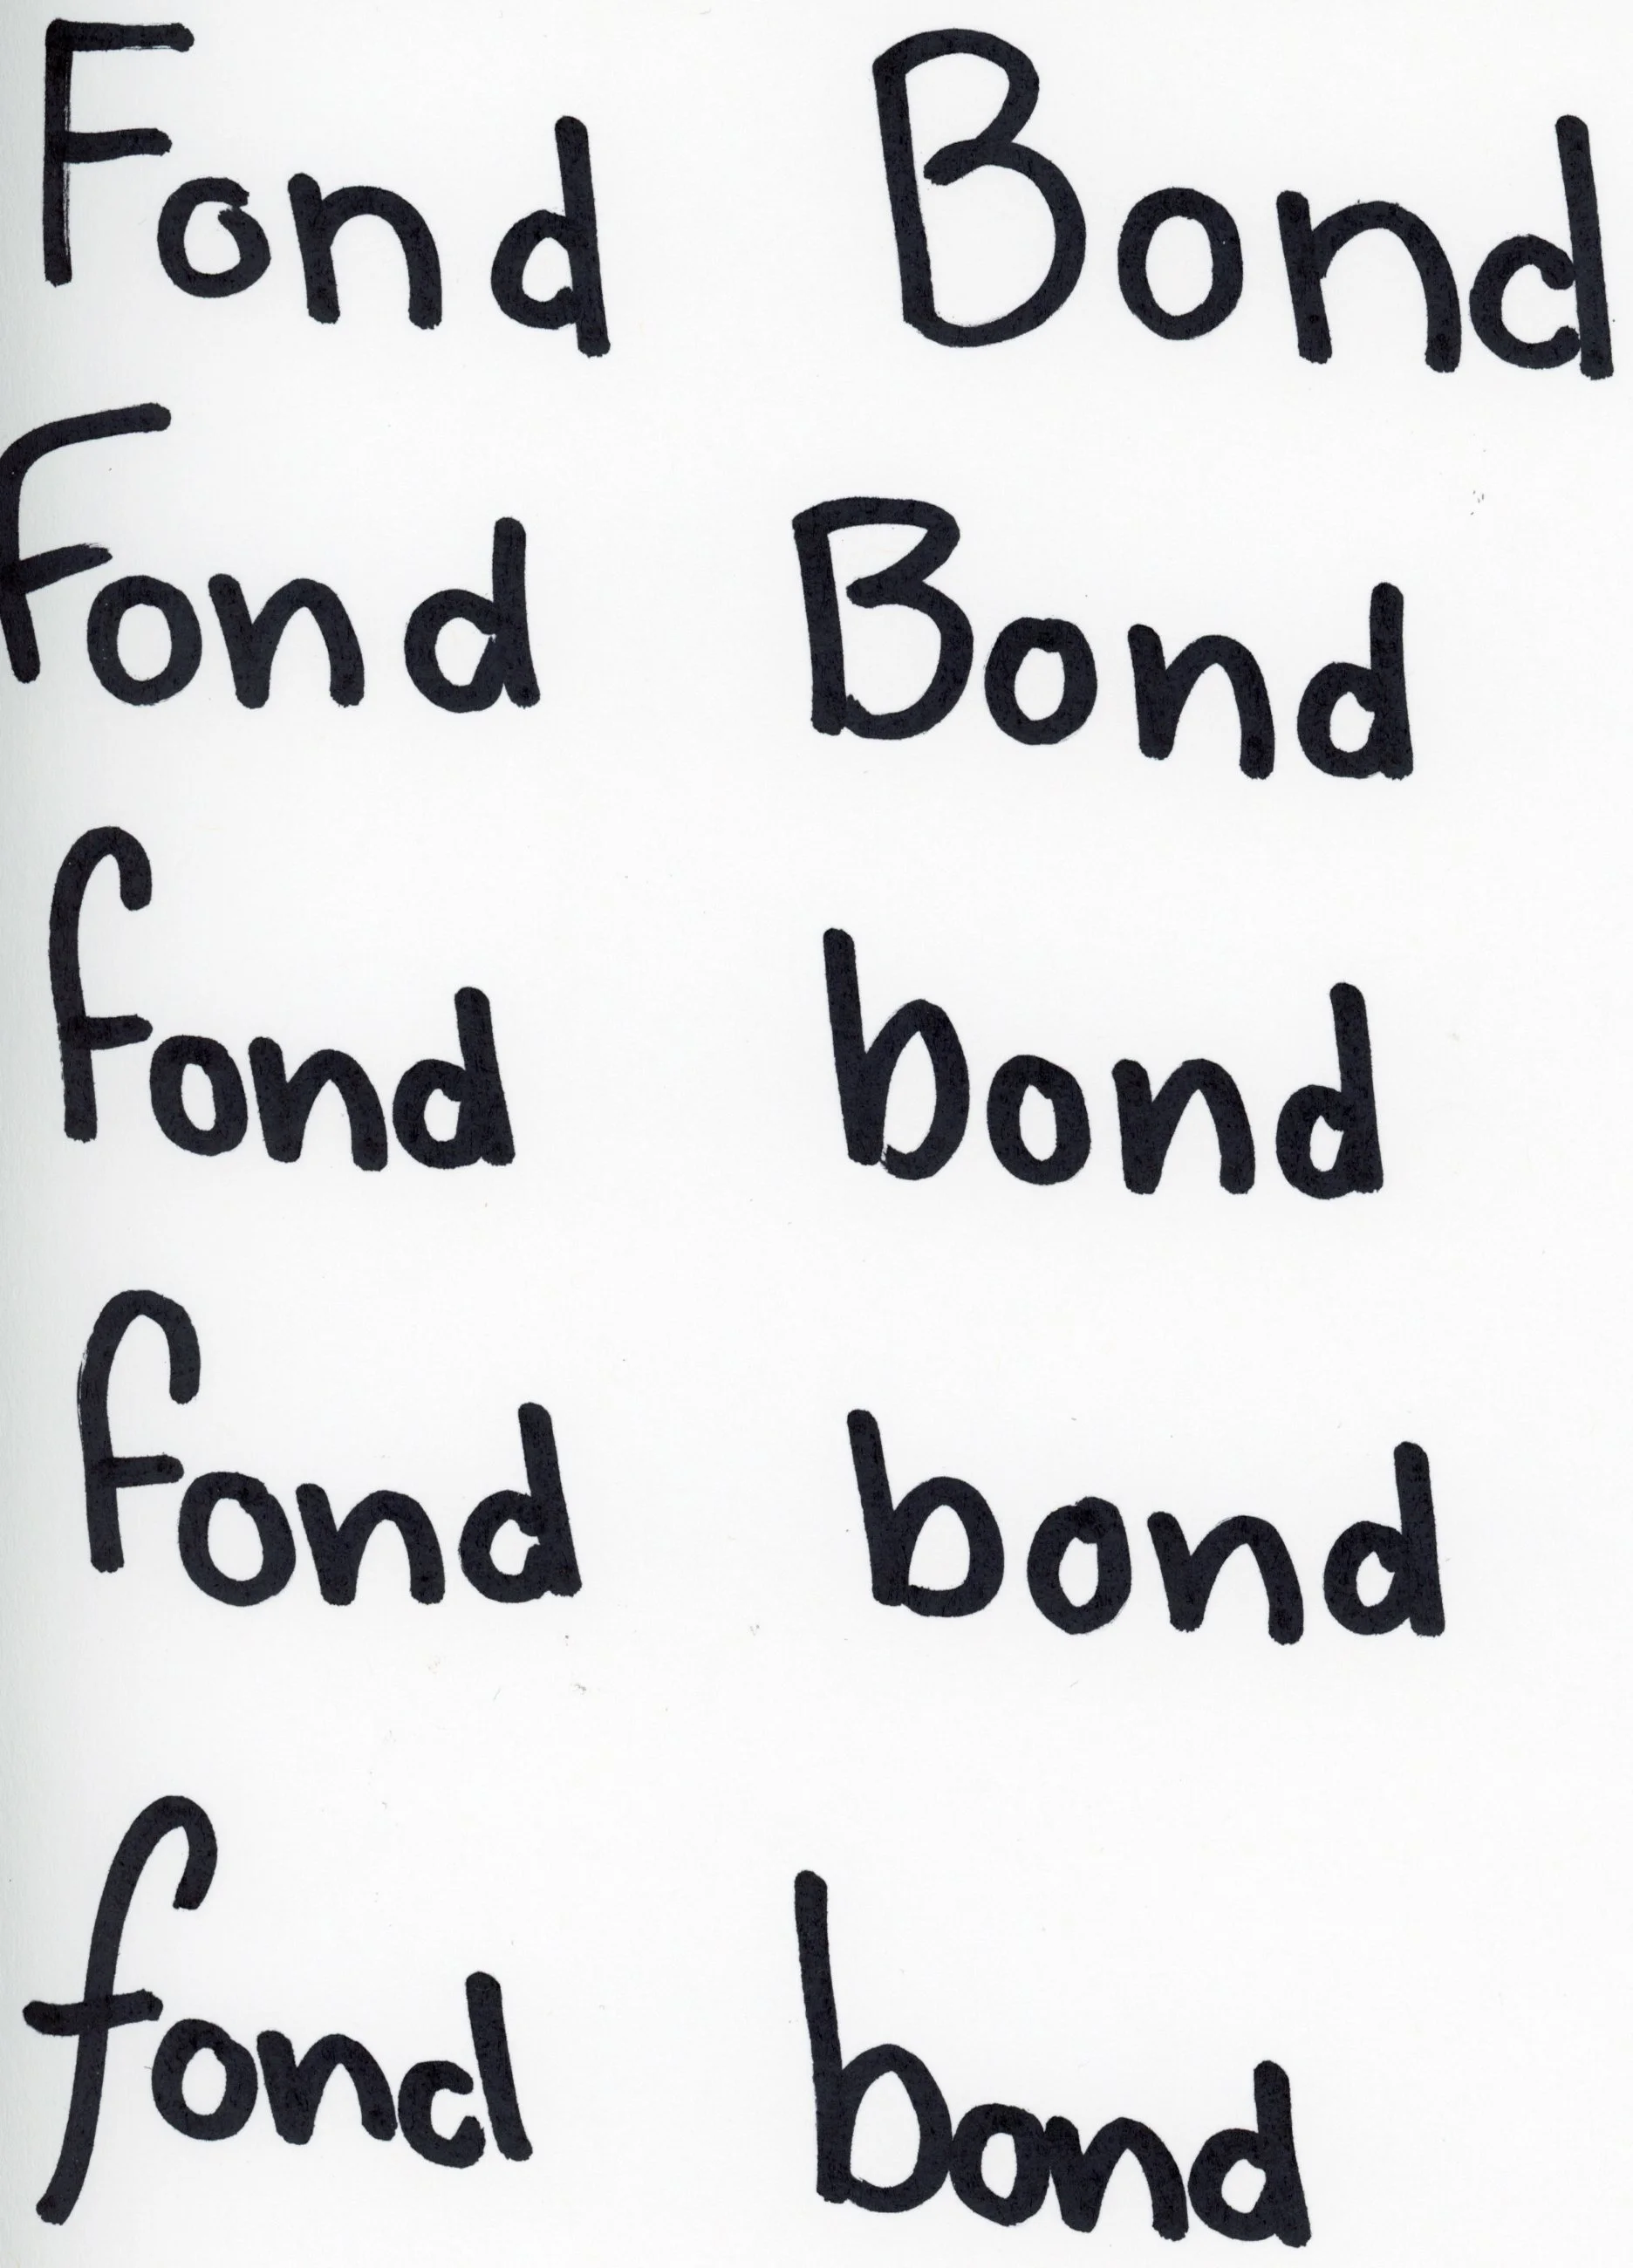 Fond Bond
Fond Bond
fond bond
fond bond
fond bond